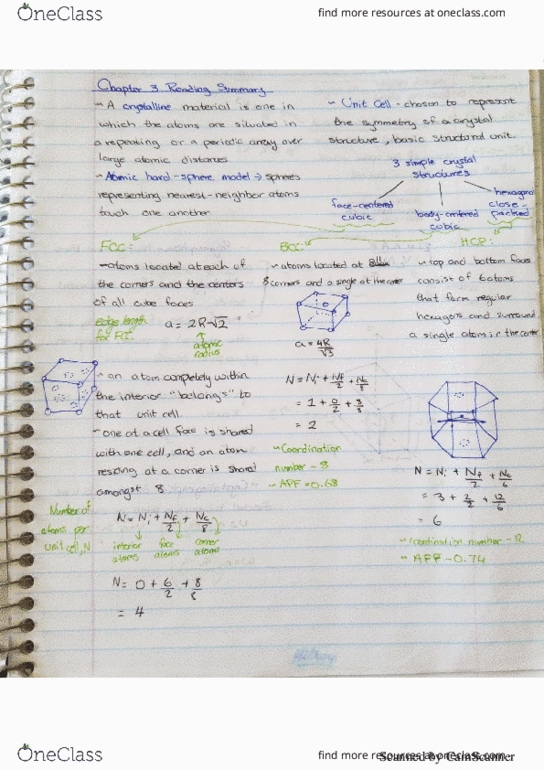 OneClass
find more resources at oneclass.com
Chapter 3 Reading Summary
~ A crystalline material is one in
which the atoms are situated in
a repeating or a periodic array over
large atomic distances
~ Atomic hard-sphere model → spheres
representing nearest-neighbor atoms
touch one another
~ Unit Cell - chosen to represent
the symmetry of a crystal
structure, basic structural unit.
3 simple crystal
structures
face-centered
cubic
body-centered
cubic
hexagonal
close-
packed
FCC:
~ atoms located at each of
the corners and the centers
of all cube faces
edge length
for FCC
a = 2R√2
atomic
radius
~ an atom completely within
the interior "belongs" to
that unit cell
~ one at a cell face is shared
with one cell, and an atom
residing at a corner is shared
amongst 8
Number of
atoms per
unit cell, N
N = Ni + Nf/2 + Nc/8
interior
atoms
face
atoms
corner
atoms
N = 0 + 6/2 + 8/8
= 4
BCC:
~ atoms located at
8 corners and a single at the center
a = 4R/√3
N = Ni + Nf/2 + Nc/8
= 1 + 0/2 + 8/8
= 2
~ Coordination
number - 8
~ APF = 0.68
HCP:
~ top and bottom faces
consist of 6 atoms
that form regular
hexagons and surround
a single atom in the center
N = Ni + Nf/2 + Nc/6
= 3 + 2/2 + 12/6
= 6
~ coordination number - 12
~ APF - 0.74
Hilroy
OneClass
find more resources at oneclass.com
Scanned by CamScanner